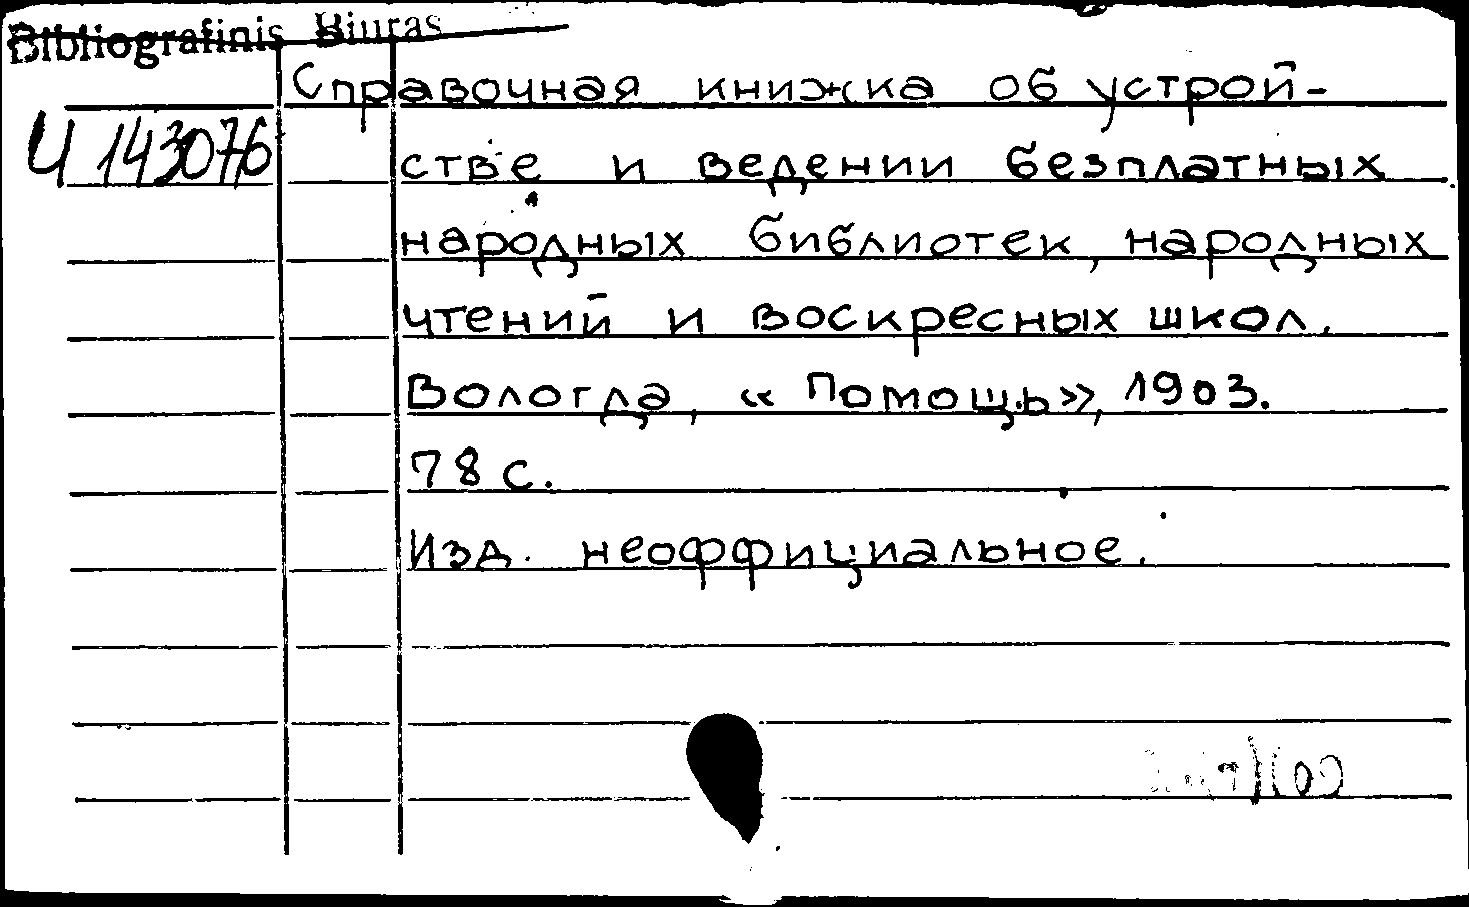 Bibliografinis Biuras
Справочная книжка об устрой-
Ч 143076
стве и ведении безплатных
народных библиотек, народных
чтений и воскресных школ.
Вологда, «Помощь», 1903.
78 с.
Изд. неоффициальное.